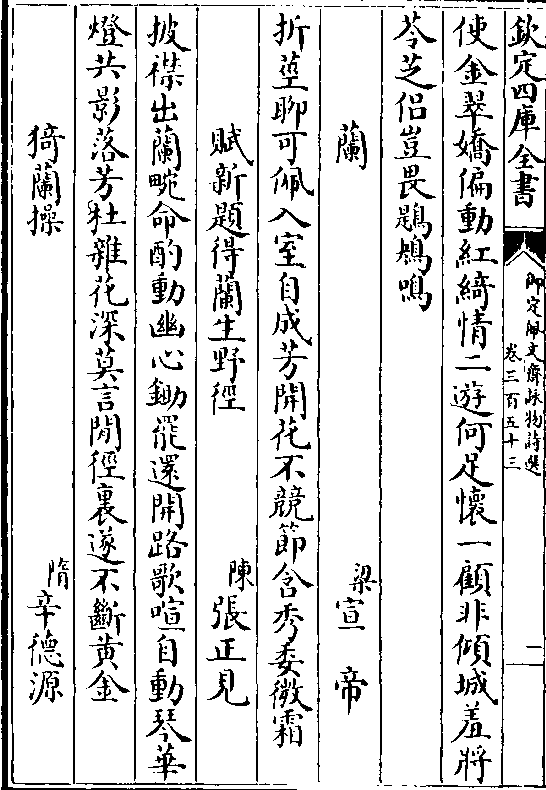 欽定四庫全書
御定佩文齋詠物詩選
卷三百五十三
二
使金翠嬌偏動紅綺情二遊何足懷一顧非傾城羞將
苓芝侶豈畏鶗鴂鳴
蘭
梁宣帝
折莖聊可佩入室自成芳開花不競節含秀委微霜
賦新題得蘭生野徑
陳張正見
披襟出蘭畹命酌動幽心鋤罷還開路歌喧自動琴華
燈共影落芳杜雜花深莫言閒徑裏遂不斷黃金
猗蘭操
隋辛德源